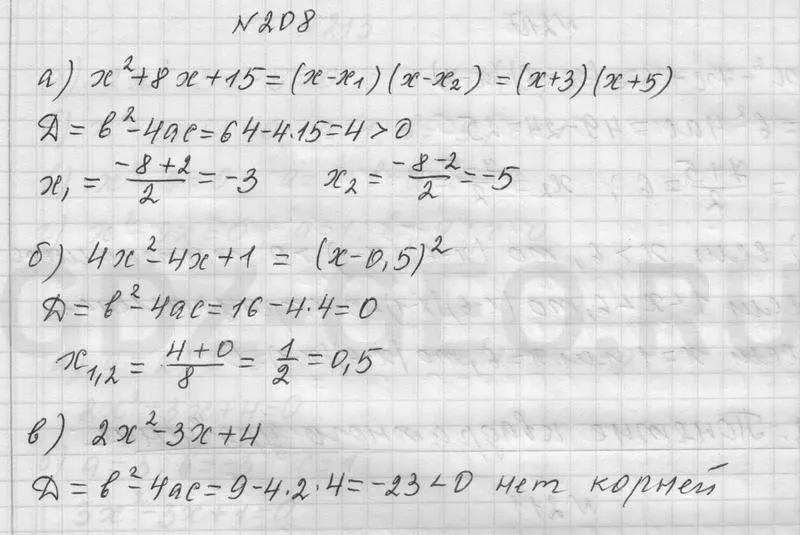 №208
а) x²+8x+15=(x-x₁)(x-x₂)=(x+3)(x+5)
Д=в²-4ас=64-4·15=4>0
x₁=(-8+2)/2=-3 x₂=(-8-2)/2=-5
б) 4x²-4x+1=(x-0,5)²
Д=в²-4ас=16-4·4=0
x₁,₂=(4+0)/8=1/2=0,5
в) 2x²-3x+4
Д=в²-4ас=9-4·2·4=-23<0 нет корней